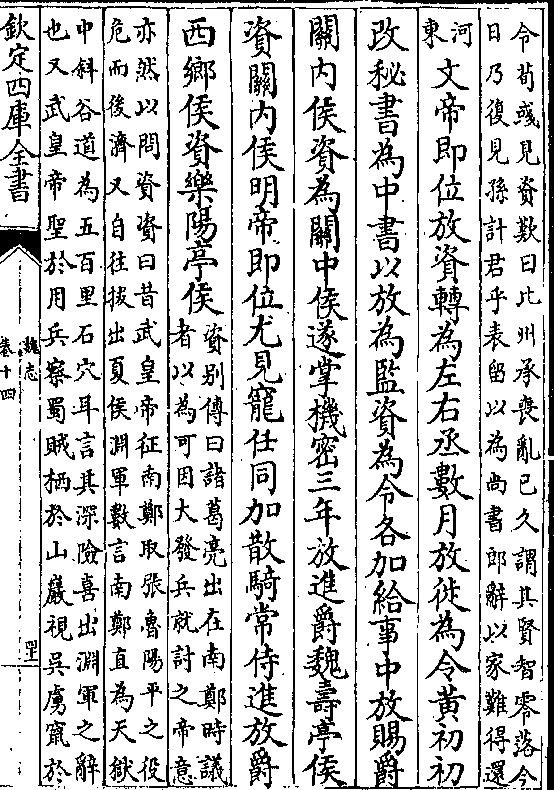 令荀彧見資歎曰北州承喪亂已久謂其賢智零落今
日乃復見孫計君乎表留以為尚書郎辭以家難得還
河東文帝即位放資轉為左右丞數月放徙為令黃初初
改秘書為中書以放為監資為令各加給事中放賜爵
關內侯資為關中侯遂掌機密三年放進爵魏壽亭侯
資關內侯明帝即位尤見寵任同加散騎常侍進放爵
西鄉侯資樂陽亭侯
資別傳曰諸葛亮出在南鄭時議
者以為可因大發兵就討之帝意
亦然以問資資曰昔武皇帝征南鄭取張魯陽平之役
危而後濟又自往拔出夏侯淵軍數言南鄭直為天獄
中斜谷道為五百里石穴耳言其深險喜出淵軍之辭
也又武皇帝聖於用兵察蜀賊栖於山巖視吳虜竄於
欽定四庫全書
魏志
卷十四